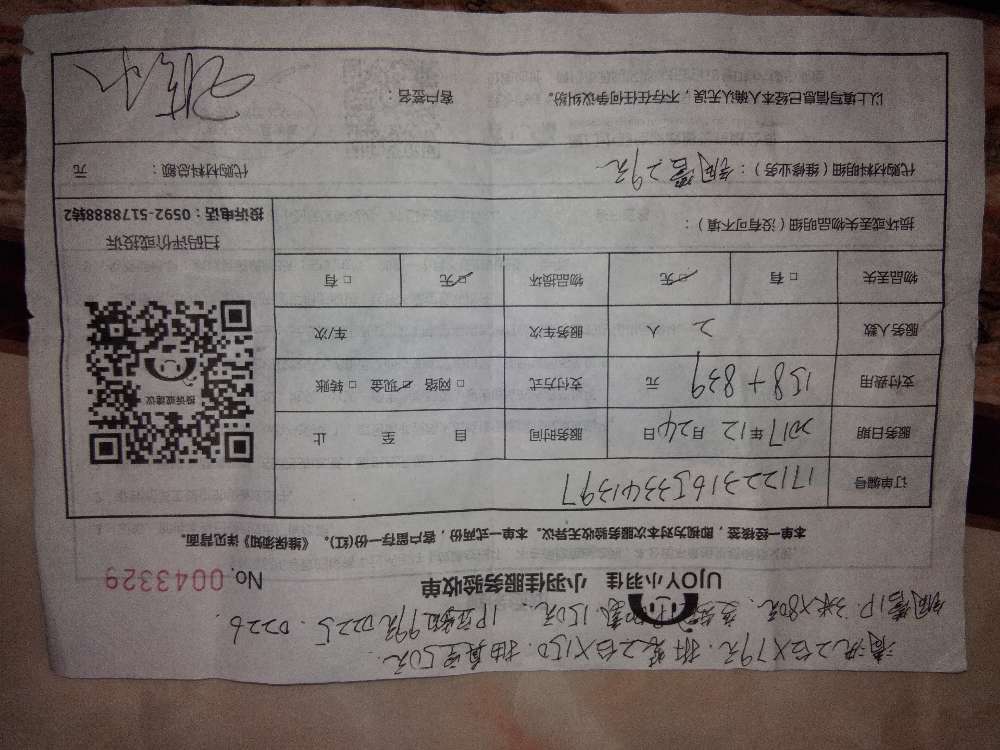 清洗2台X79元. 拆装2台X150. 抽真空50元.
铜管1P.3米X80元. 150元. 1P 99元 0225. 0226.
UJOY小羽佳 小羽佳服务验收单 No. 0043329
本单一经接签，即视为对本次服务验收无异议。本单一式两份，客户留存一份(红)。《维保须知》详见背面。
订单编号 17122316533441397
服务日期 2017年12月24日 服务时间 自 至 止
支付费用 158+839 元 支付方式 □ 网络 □ 现金 □ 转账
投诉或建议
服务人数 2 人 服务车次 车/次
物品丢失 □ 有 □ 无 物品损坏 □ 无 □ 有
损坏或丢失物品明细（没有可不填）：
扫码评价或投诉
投诉电话：0592-5178888转2
代购材料明细（维修业务）：铜管29元 代购材料总额： 元
以上填写信息已经本人确认无误，不存在任何争议纠纷。 客户签名：